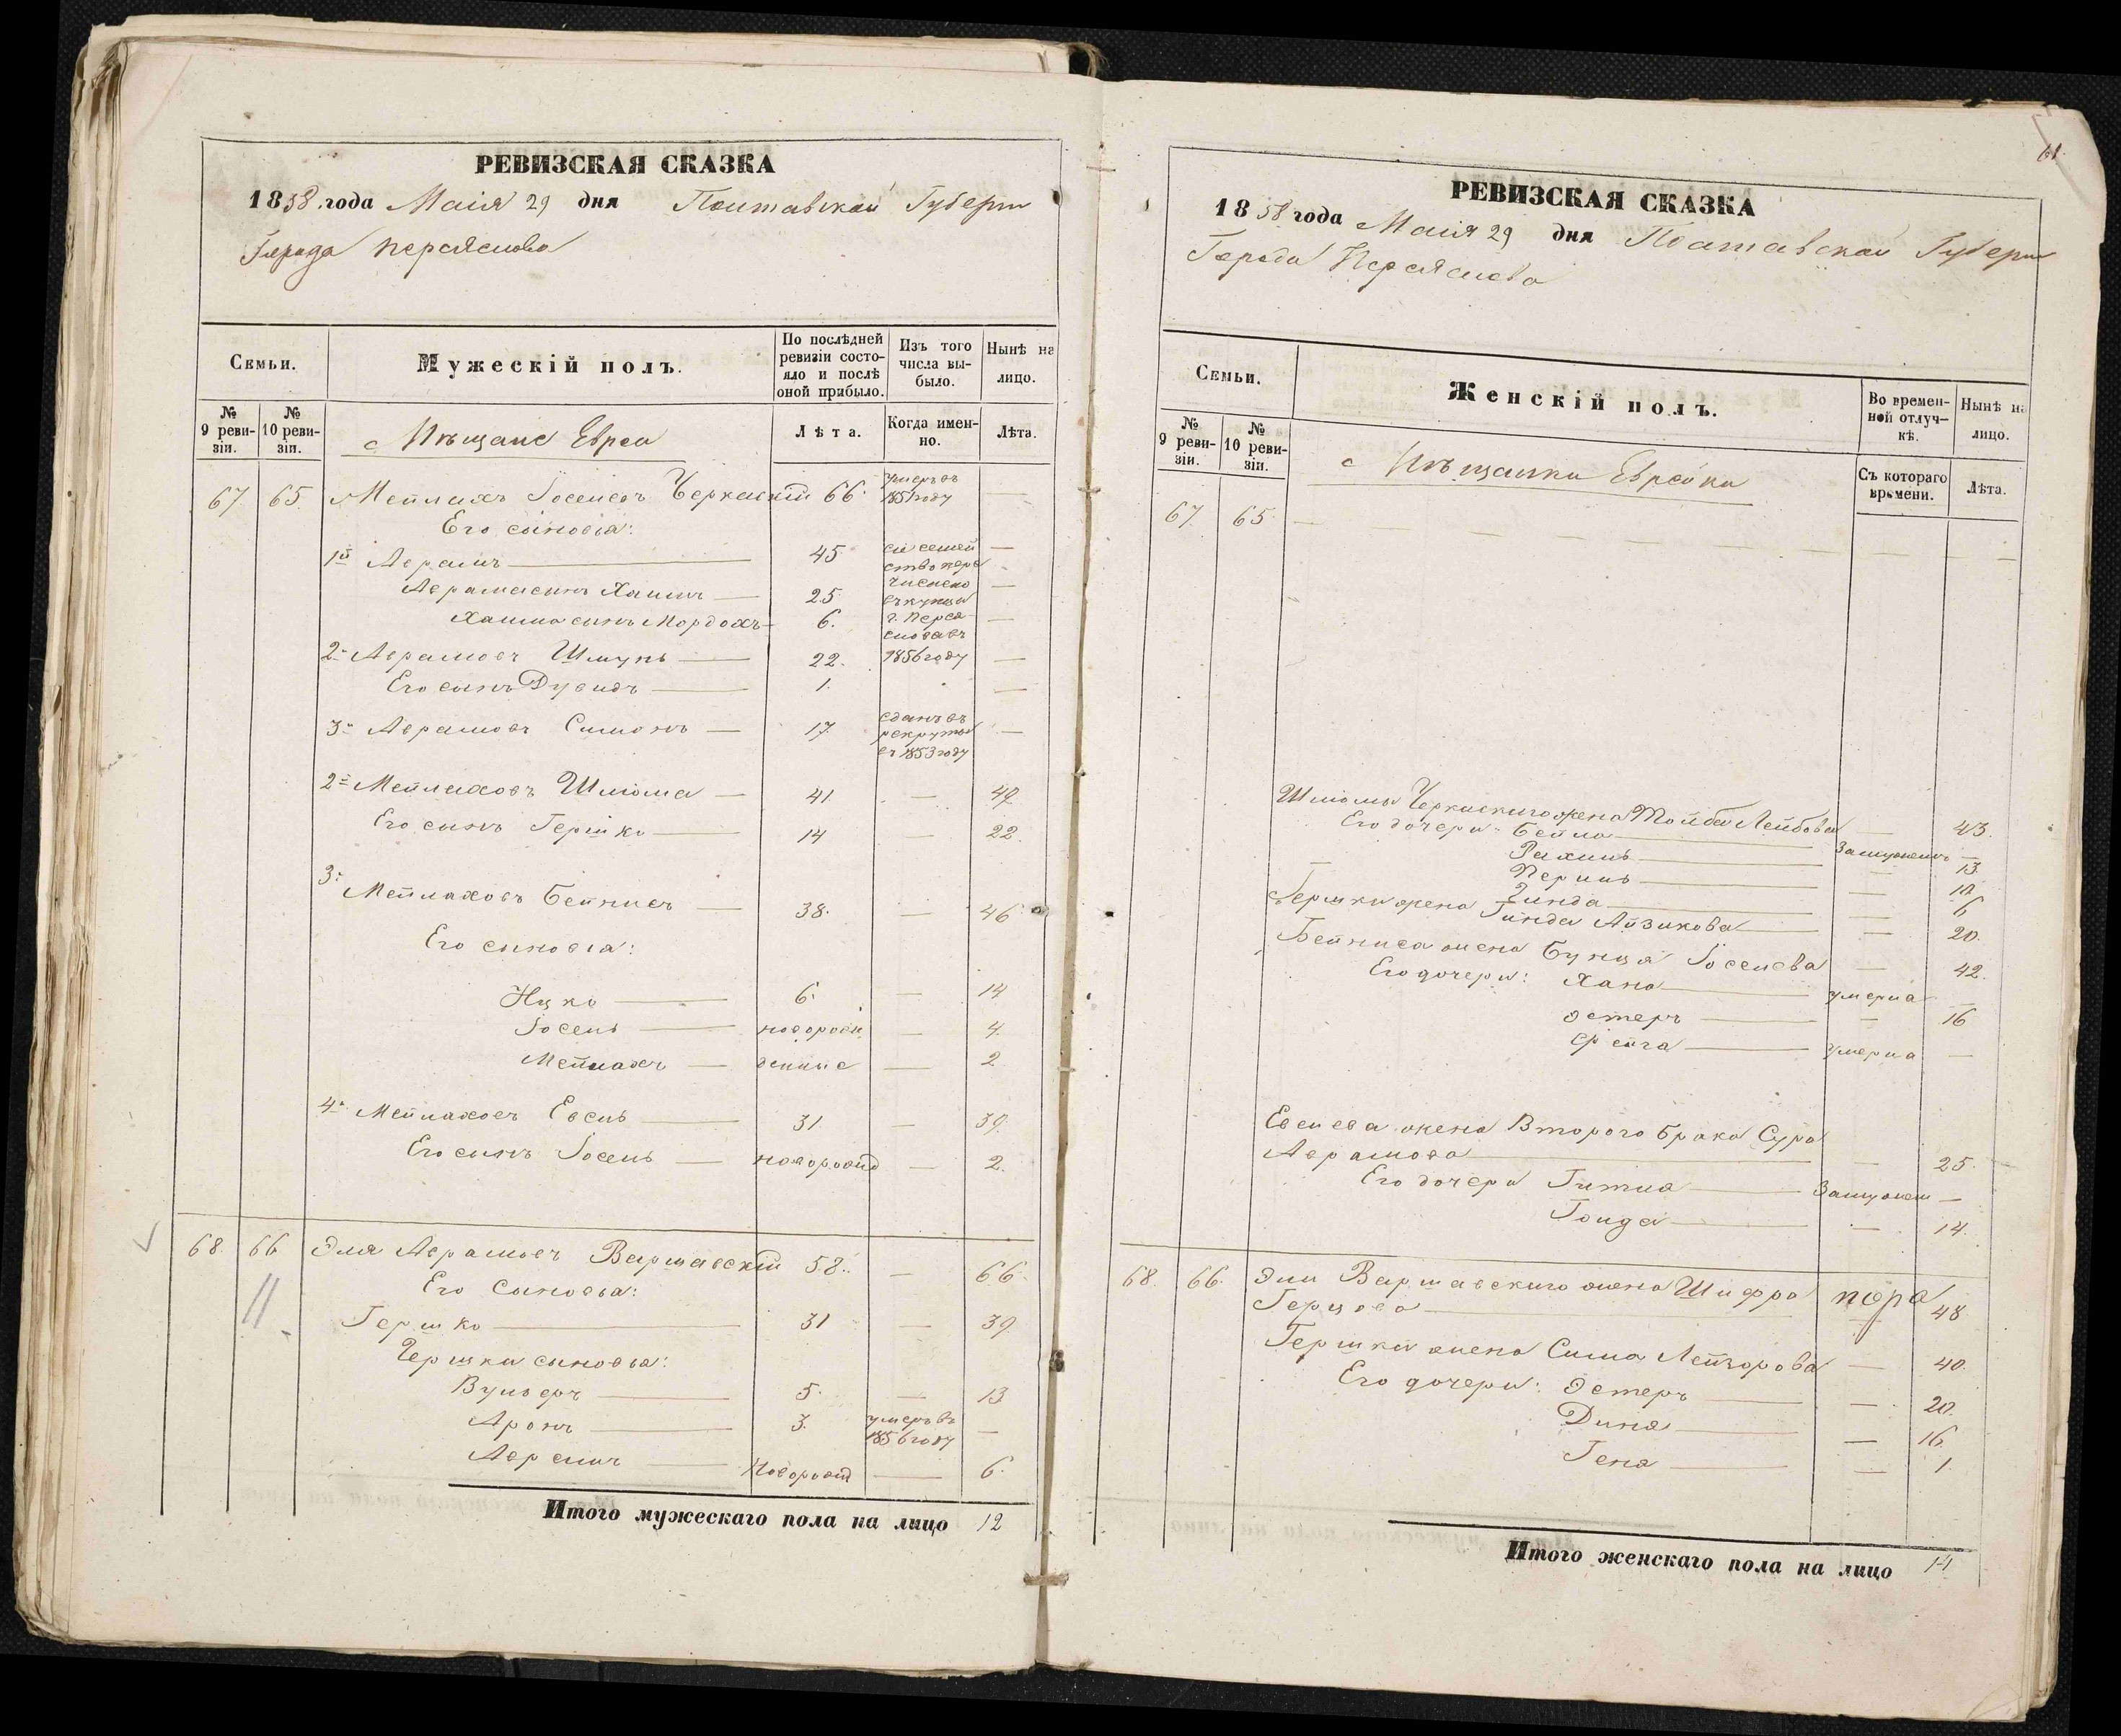 РЕВИЗСКАЯ СКАЗКА
1858 года Маія 29 дня Полтавской Губерн
Города Переяслова
Семьи.
Мужескій полъ.
По послѣдней ревизіи состояло и послѣ оной прибыло.
Изъ того числа выбыло.
Нынѣ на лицо.
№ 9 ревизіи.
№ 10 ревизіи.
Мѣщане Евреи
Лѣта.
Когда именно.
Лѣта.
67. 65. Мейлахъ Іоселевъ Черкаскій 66. умеръ въ 1851 году —
Его сыновья:
1й Аврамъ — 45 сіе семейство перечислено въ купцы г. Переяслова въ 1856 году —
Аврама сынъ Хаимъ — 25 —
Хаима сынъ Мордохъ — 6. —
2й Аврамовъ Шмуль — 22. —
Его сынъ Дувидъ — 1. —
3й Аврамовъ Симонъ — 17. сданъ въ рекруты въ 1853 году —
2й Мейлаховъ Шліома — 41 — 49
Его сынъ Гершко — 14 — 22.
3й Мейлаховъ Бейнисъ — 38. — 46
Его сыновья:
Ицко — 6. — 14
Іосель — новорожденные — 4.
Мейлахъ — — 2
4й Мейлаховъ Евсей — 31 — 39.
Его сынъ Іосель — новорожд — 2.
68. 66 Эля Аврамовъ Варшавскій 58. — 66.
Его Сыновья:
Гершко — 31 — 39.
Гершки сыновья:
Вульфъ — 5. — 13
Аронъ — 3. умеръ въ 1856 году —
Аврамъ — Новорожд — 6.
Итого мужескаго пола на лицо 12
61.
РЕВИЗСКАЯ СКАЗКА
1858 года Маія 29 дня Полтавской Губерн
Города Переяслова
Семьи.
Женскій полъ.
Во временной отлучкѣ.
Нынѣ на лицо.
№ 9 ревизіи.
№ 10 ревизіи.
Мѣщанки Еврейки
Съ котораго времени.
Лѣта.
67. 65 — — — — — — — —
Шліомы Черкаскаго жена Тойба Лейбова — 43.
Его дочери: Бейла — Замужемъ —
Рахиль — — 13.
Перль — — 10.
Зинда — — 6
Гершки жена Гинда Айзикова — 20.
Бейниса жена Бунця Іоселева — 42.
Его дочери: Хана — умерла —
Эстеръ — — 16
Фейга — умерла —
Евсея жена Второго брака Сура
Аврамова — — 25.
Его дочери Гитля — Замужем —
Гольда — — 14.
68. 66. Эли Варшавскаго жена Шифра
Герцова — — 48
Гершки жена Сима Лейзорова — 40.
Его дочери: Эстеръ — — 20.
Дина — — 16.
Гена — — 1.
Итого женскаго пола на лицо 14